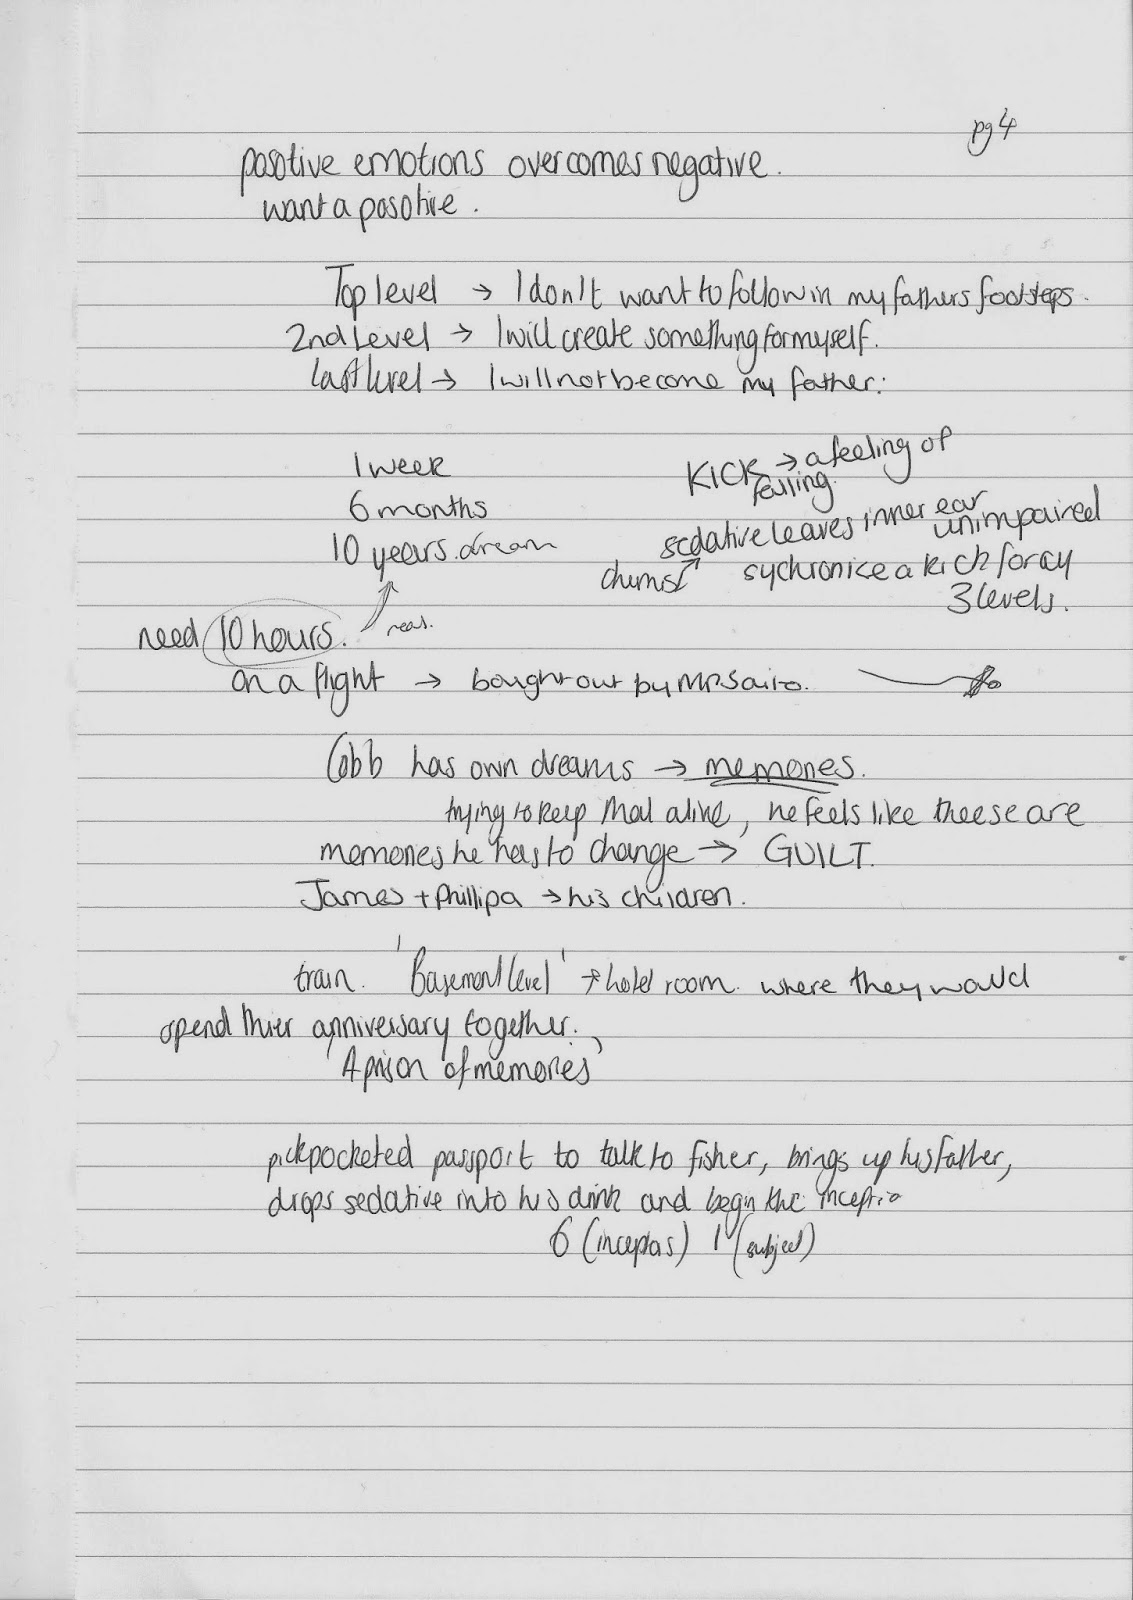 pg 4
posotive emotions overcomes negative.
want a posotive.
Top level → I don't want to follow in my fathers footsteps.
2nd Level → I will create something for myself.
last level → I will not become my father.
1 week
6 months
10 years dream
KICK → a feeling of
falling.
sedative leaves inner ear
unimpaired
chemist
sychronice a kick for ay
3 levels.
need 10 hours. real.
on a flight → bought out by Mr Saito.
Cobb has own dreams → memories.
trying to keep Mal alive, he feels like theese are
memories he has to change → GUILT.
James + Phillipa → his children.
train. 'Basement level' → hotel room. where they would
spend thier anniversary together.
'A prison of memories'
pickpocketed passport to talk to fisher, brings up his father,
drops sedative into his drink and begin the inceptio
6 (inceptors) 1 (subject)